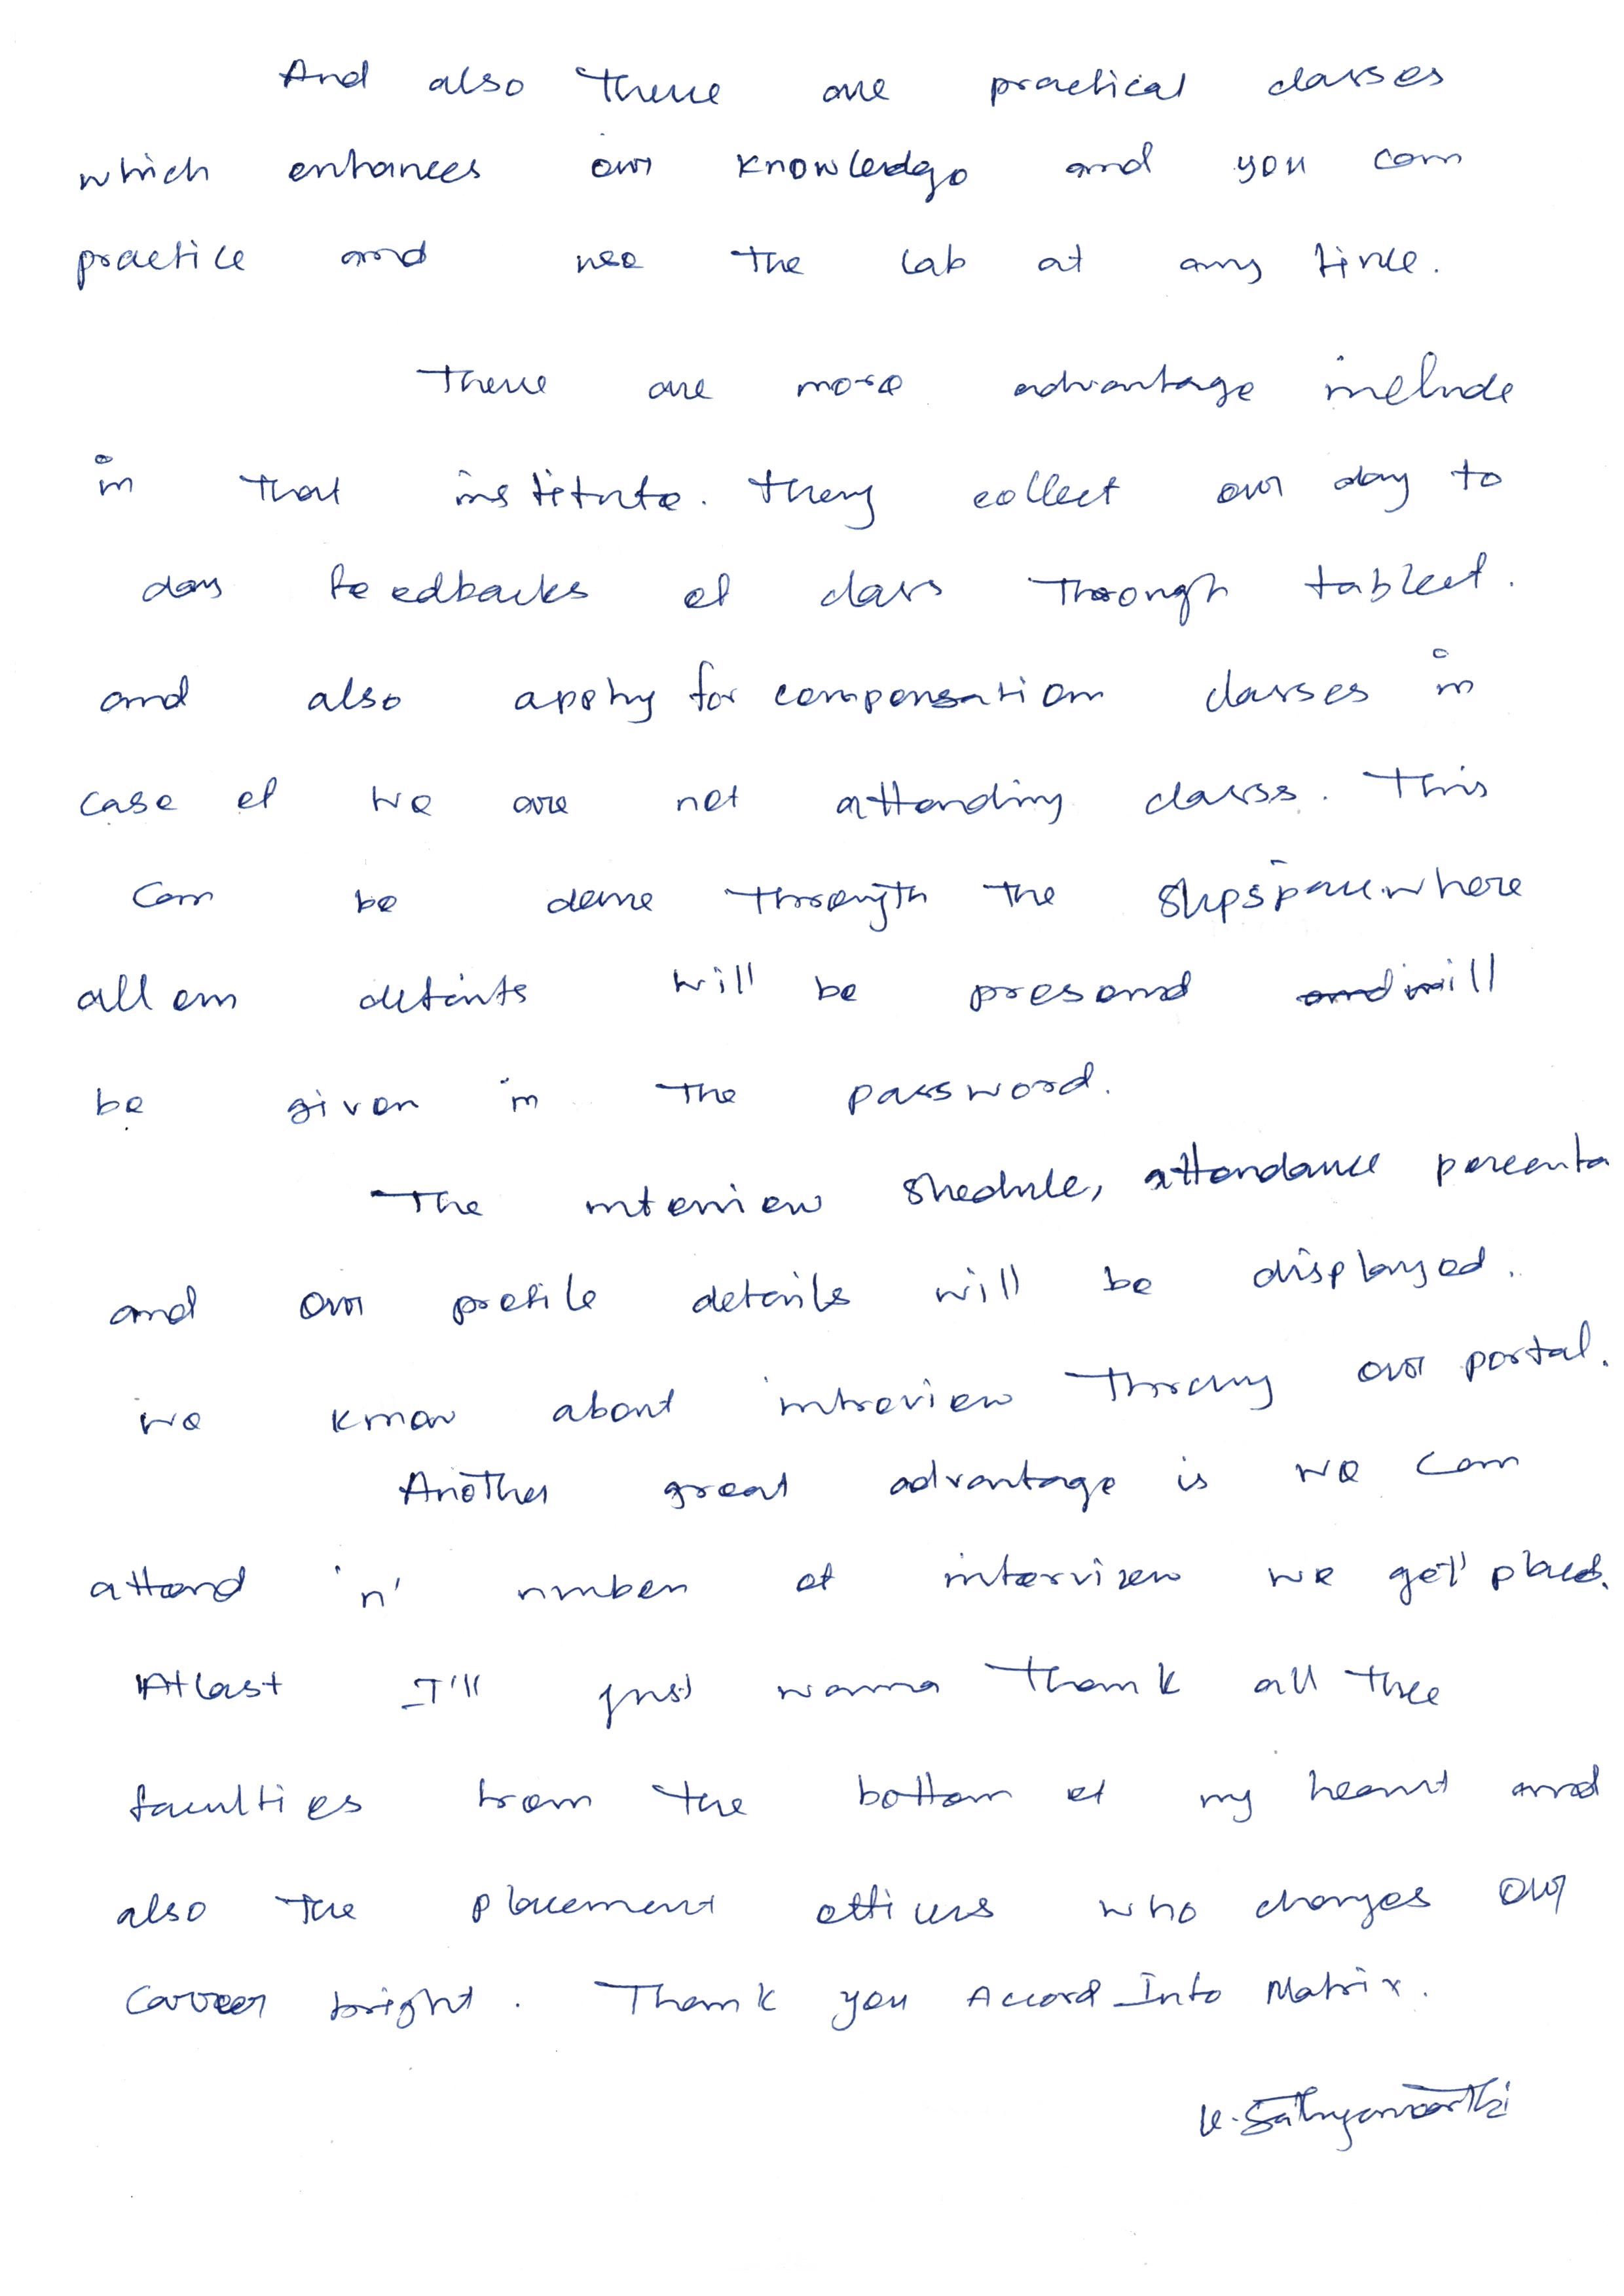 And also there are practical classes
which enhances our knowledge and you can
practice and use the lab at any time.
There are more advantage include
in that institute. they collect our day to
day feedbacks of class through tablet.
and also apply for compensation classes in
case of we are not attending classs. This
can be done through the where
all our details will be presend and will
be given in the password.
The interview shedule, attendance percenta
and our profile details will be displayed.
we know about introview through our portal.
Another great advantage is we can
attend 'n' number of interview we get placed.
Atlast I'll just wanna thank all the
faculties from the bottom of my heart and
also the placement officers who changes our
career bright. Thank you Accord Info Matrix.
K. Sathyamoorthi